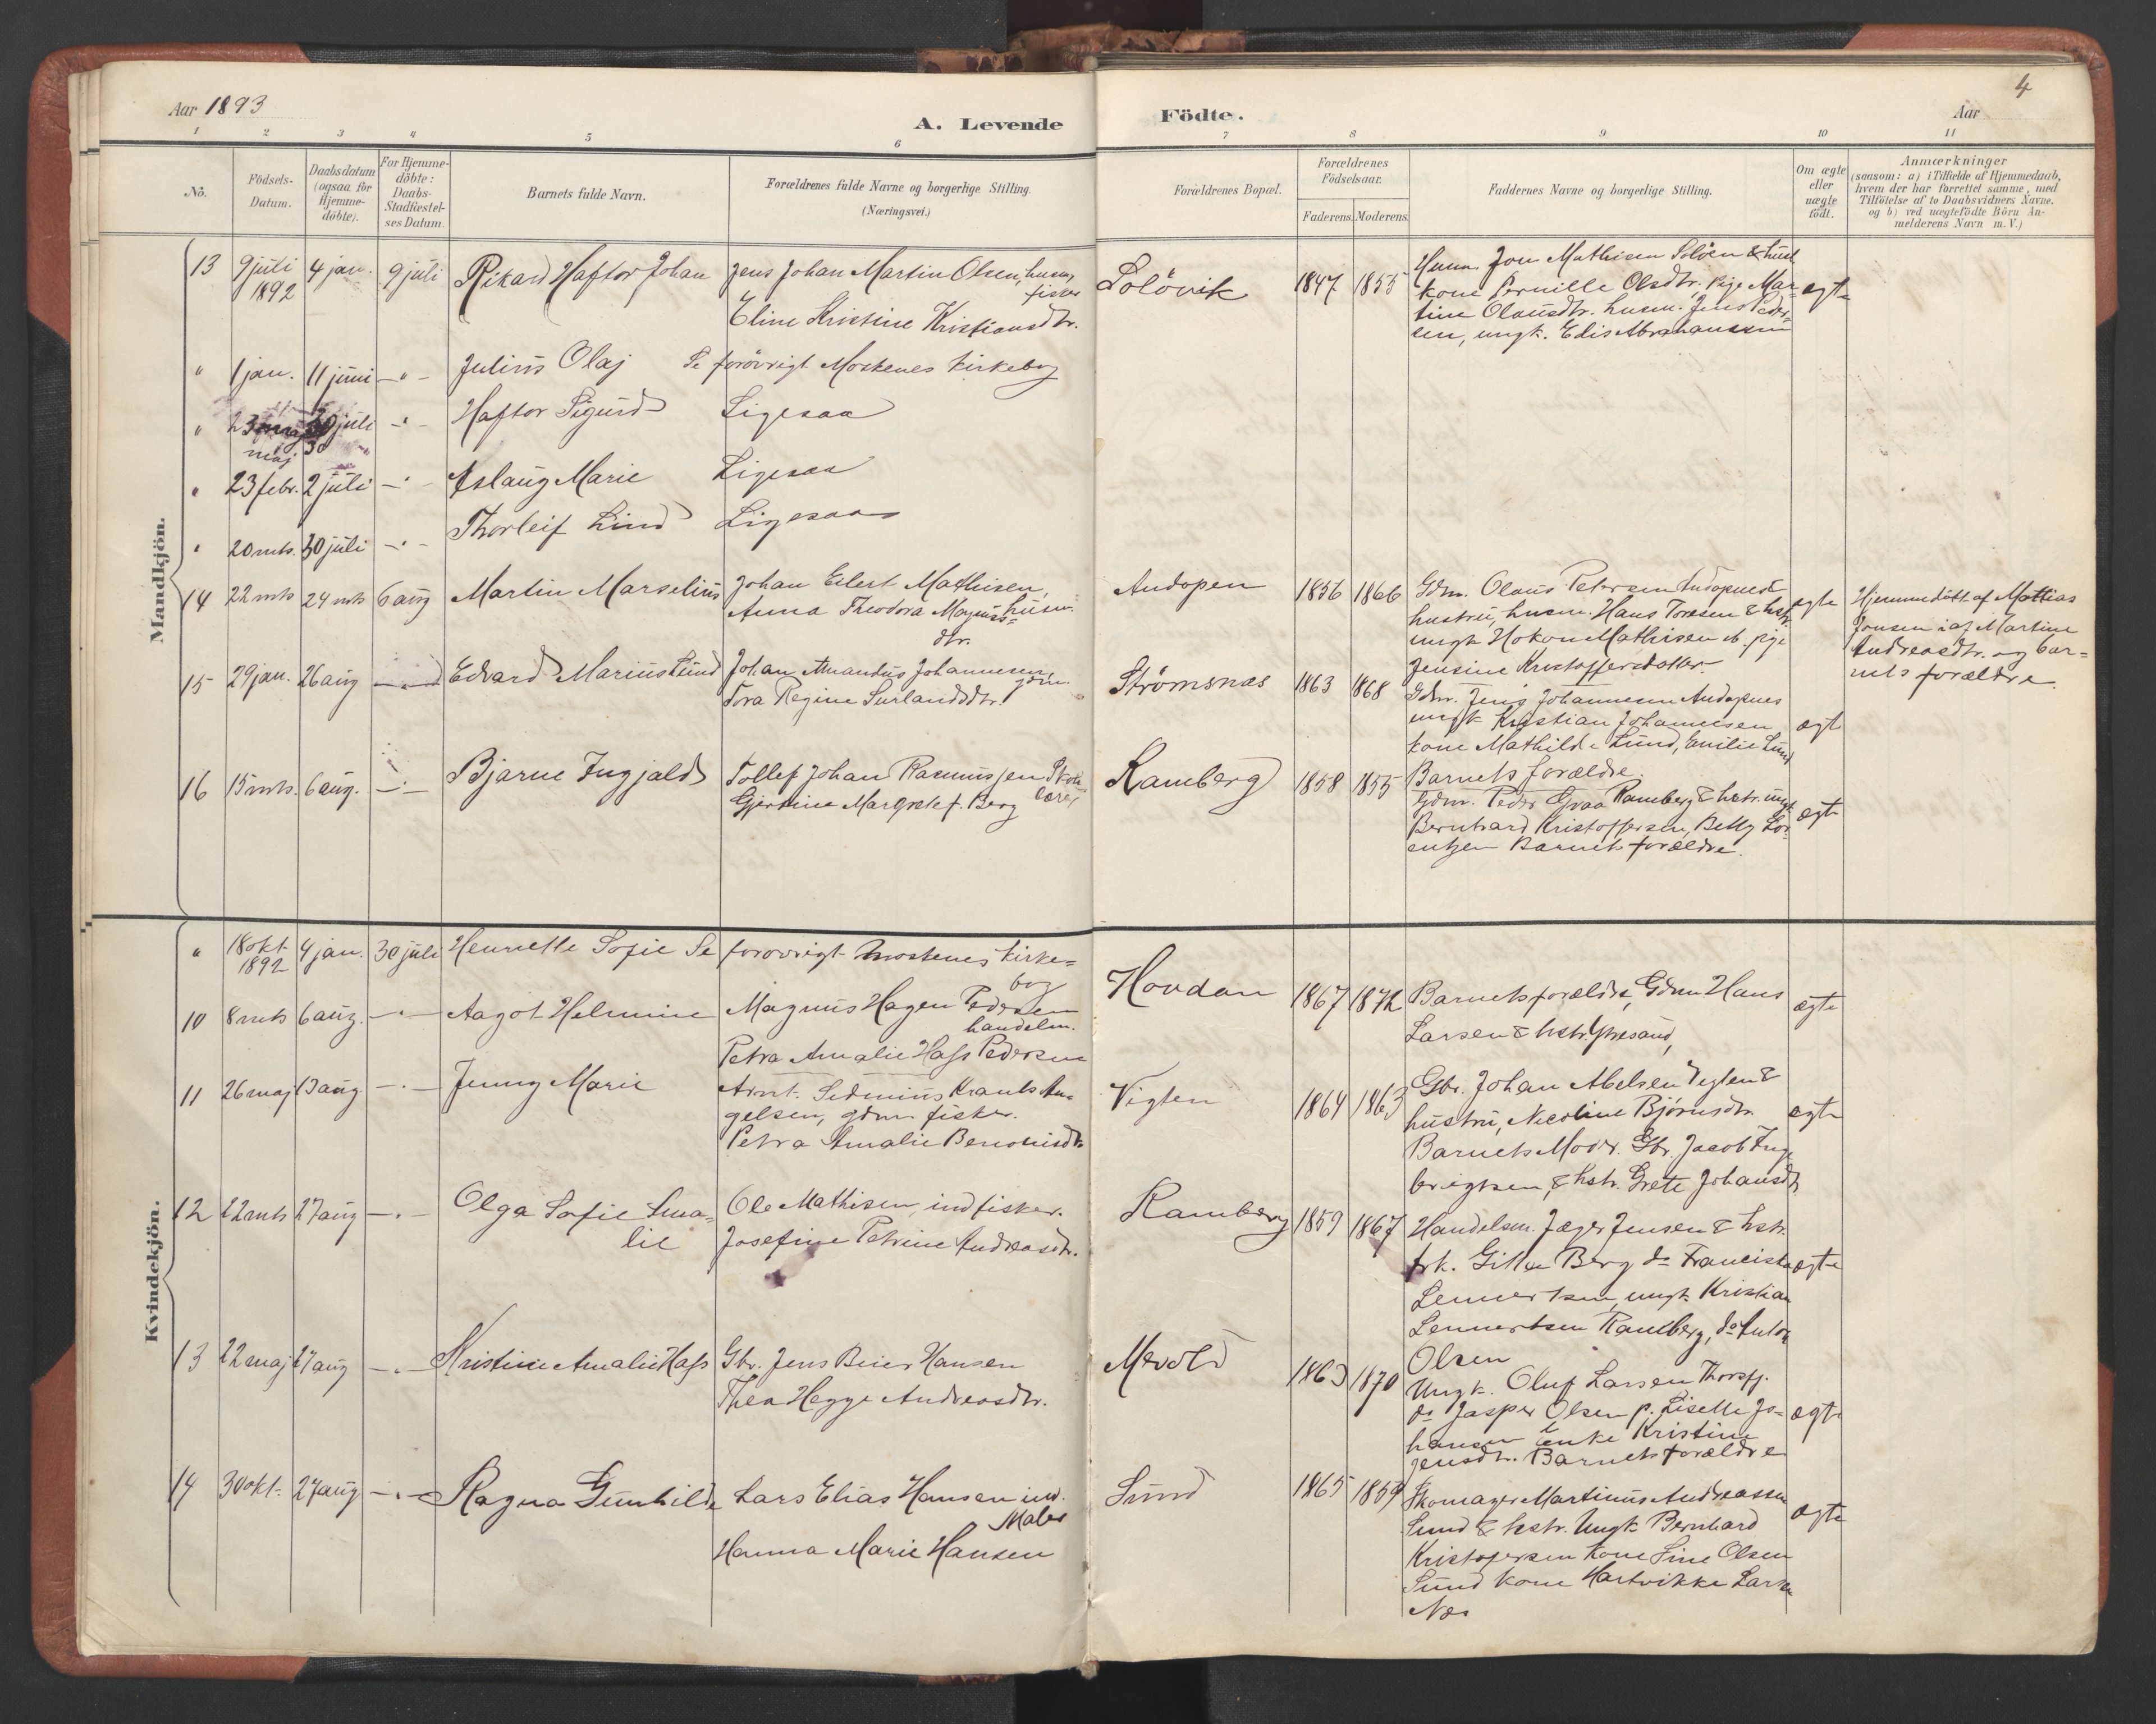 4
Aar 1893
A. Levende
Födte.
Aar
1 2 3 4 5 6 7 8 9 10 11
Nö.
Födsels-
Datum.
Daabsdatum
(ogsaa for
Hjemme-
döbte).
For Hjemme-
döbte:
Daabs-
Stadfæstel-
ses Datum.
Barnets fulde Navn.
Forældrenes fulde Navne og borgerlige Stilling.
(Næringsvei.)
Forældrenes Bopæl.
Forældrenes
Födselsaar.
Faderens. Moderens.
Faddernes Navne og borgerlige Stilling.
Om ægte
eller
uægte
födt.
Anmærkninger
(saasom: a) i Tilfælde af Hjemmedaab,
hvem der har forrettet samme, med
Tilföielse af to Daabsvidners Navne.
og b) ved uægtefödte Börn An-
melderens Navn m. V.)
Mandkjön.
13 9 juli 1892 4 jan. 9 juli Rikard Haftor Johan
Jens Johan Martin Olsen, husm,
fisker
Eline Kristine Kristiansdtr.
Solövik 1847 1855
Husm. Jon Mathisen Solöen & hust
kone Pernille Olsdtr, pige Mar-
tine Olausdtr. husm. Jens Peder-
sen, ungk. Edis Abrahamsen
ægte
" 1 jan. 11 juni -"- Julius Olaj Se forövrigt Moskenes kirkebog
" 23 maj 30 juli -"- Haftor Sigurd Ligesaa
maj 30
" 23 febr. 2 juli -"- Aslaug Marie Ligesaa
" 20 mts. 30 juli -"- Thorleif Lind Ligesaa
14 22 mts 24 mts 6 aug Martin Marselius
Johan Eilert Mathisen,
husm.
Anna Theodora Magnus=
dtr.
Andopen 1856 1866
Gdm. Olaus Petersen Andopen &
hustru, husm. Hans Toresen & hstr.
ungk Hokon Mathisen pige
Jensine Kristoffersdatter
ægte
Hjemmedöbt af Mattias
Jonsen Martine
Andreasdtr. og bar=
nets forældre.
15 29 jan. 26 aug -"- Edvard Marius Lund
Johan Amandus Johannesen
gdm.
Tora Regine Surlanddtr.
Strömsnæs 1863 1868
Gdm. Jens Johannesen Andopnes
ungk Kristian Johannesen
kone Mathilde Lund, Emilie Lund
Barnets forældre.
ægt
16 15 mts. 6 aug. -"- Bjarne Ingjald
Tollef Johan Rasmussen Skole
lærer
Gjertine Margrete f. Berg
Ramberg 1858 1855
Gdm. Peder Ramberg & hstr. ungk
Bernhard Kristoffersen, Betty Lor-
entzen Barnets forældre.
ægte
Kvindekjön.
" 18 okt. 1892 4 jan. 30 juli Henriette Sofie Se forövrigt Moskenes kirke=
bog
10 8 mts 6 aug. -"- Aagot Helmine
Magnus Hagen Pedersen
handelm.
Petra Amalie Hass Pedersen
Hovdan 1867 1872
Barnets forældre, Gdm Hans
Larsen & hstr. Yttresand,
ægte
11 26 maj 13 aug -"- Jenny Marie
Arnt Sedenius Krants An-
gelsen, gdm fisker.
Petra Amalie Benonisdtr
Vigten 1864 1863
Gbr. Johan Abelsen Vigten &
hustru, Nicoline Bjørnsdtr.
Barnets Moder. Gbr. Jacob Inge
brigtsen, & hstr. Grete Johansdtr
ægte
12 22 mts 27 aug -"- Olga Sofie Ama=
lie
Ole Mathisen, ind fisker.
Josefine Petrine Andreasdtr.
Ramberg 1859 1867
Handelsm. Jæger Jensen & hstr.
frk. Gitta Berg do Franciska
Lennertsen, ungk Kristian
Lennertsen Ramberg, do Anton
Olsen
ægte
13 22 maj 27 aug -"- Kristine Amalie Hass
Gbr. Jens Beier Hansen
Thea Hegge Andreasdtr.
Mevold 1863 1870
Ungk. Oluf Larsen Thorsfj.
do Jasper Olsen p. Liselle Jo-
hansen Enke Kristine
Jensdtr. Barnets forældre
ægte
14 30 okt. 27 aug -"- Ragna Gunhilde
Lars Elias Hansen ind.
Maler
Hanna Marie Hansen
Sund 1865 1859
Skomager Martinus Andreassen
Sund & hstr. Ungk Bernhard
Kristofersen kone Sine Olsen
Sund kone Hartvikke Larsen
Næs
ægte